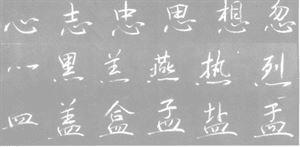 心志忠思想忽
灬黑羔燕热烈
皿盖盒孟盐盂